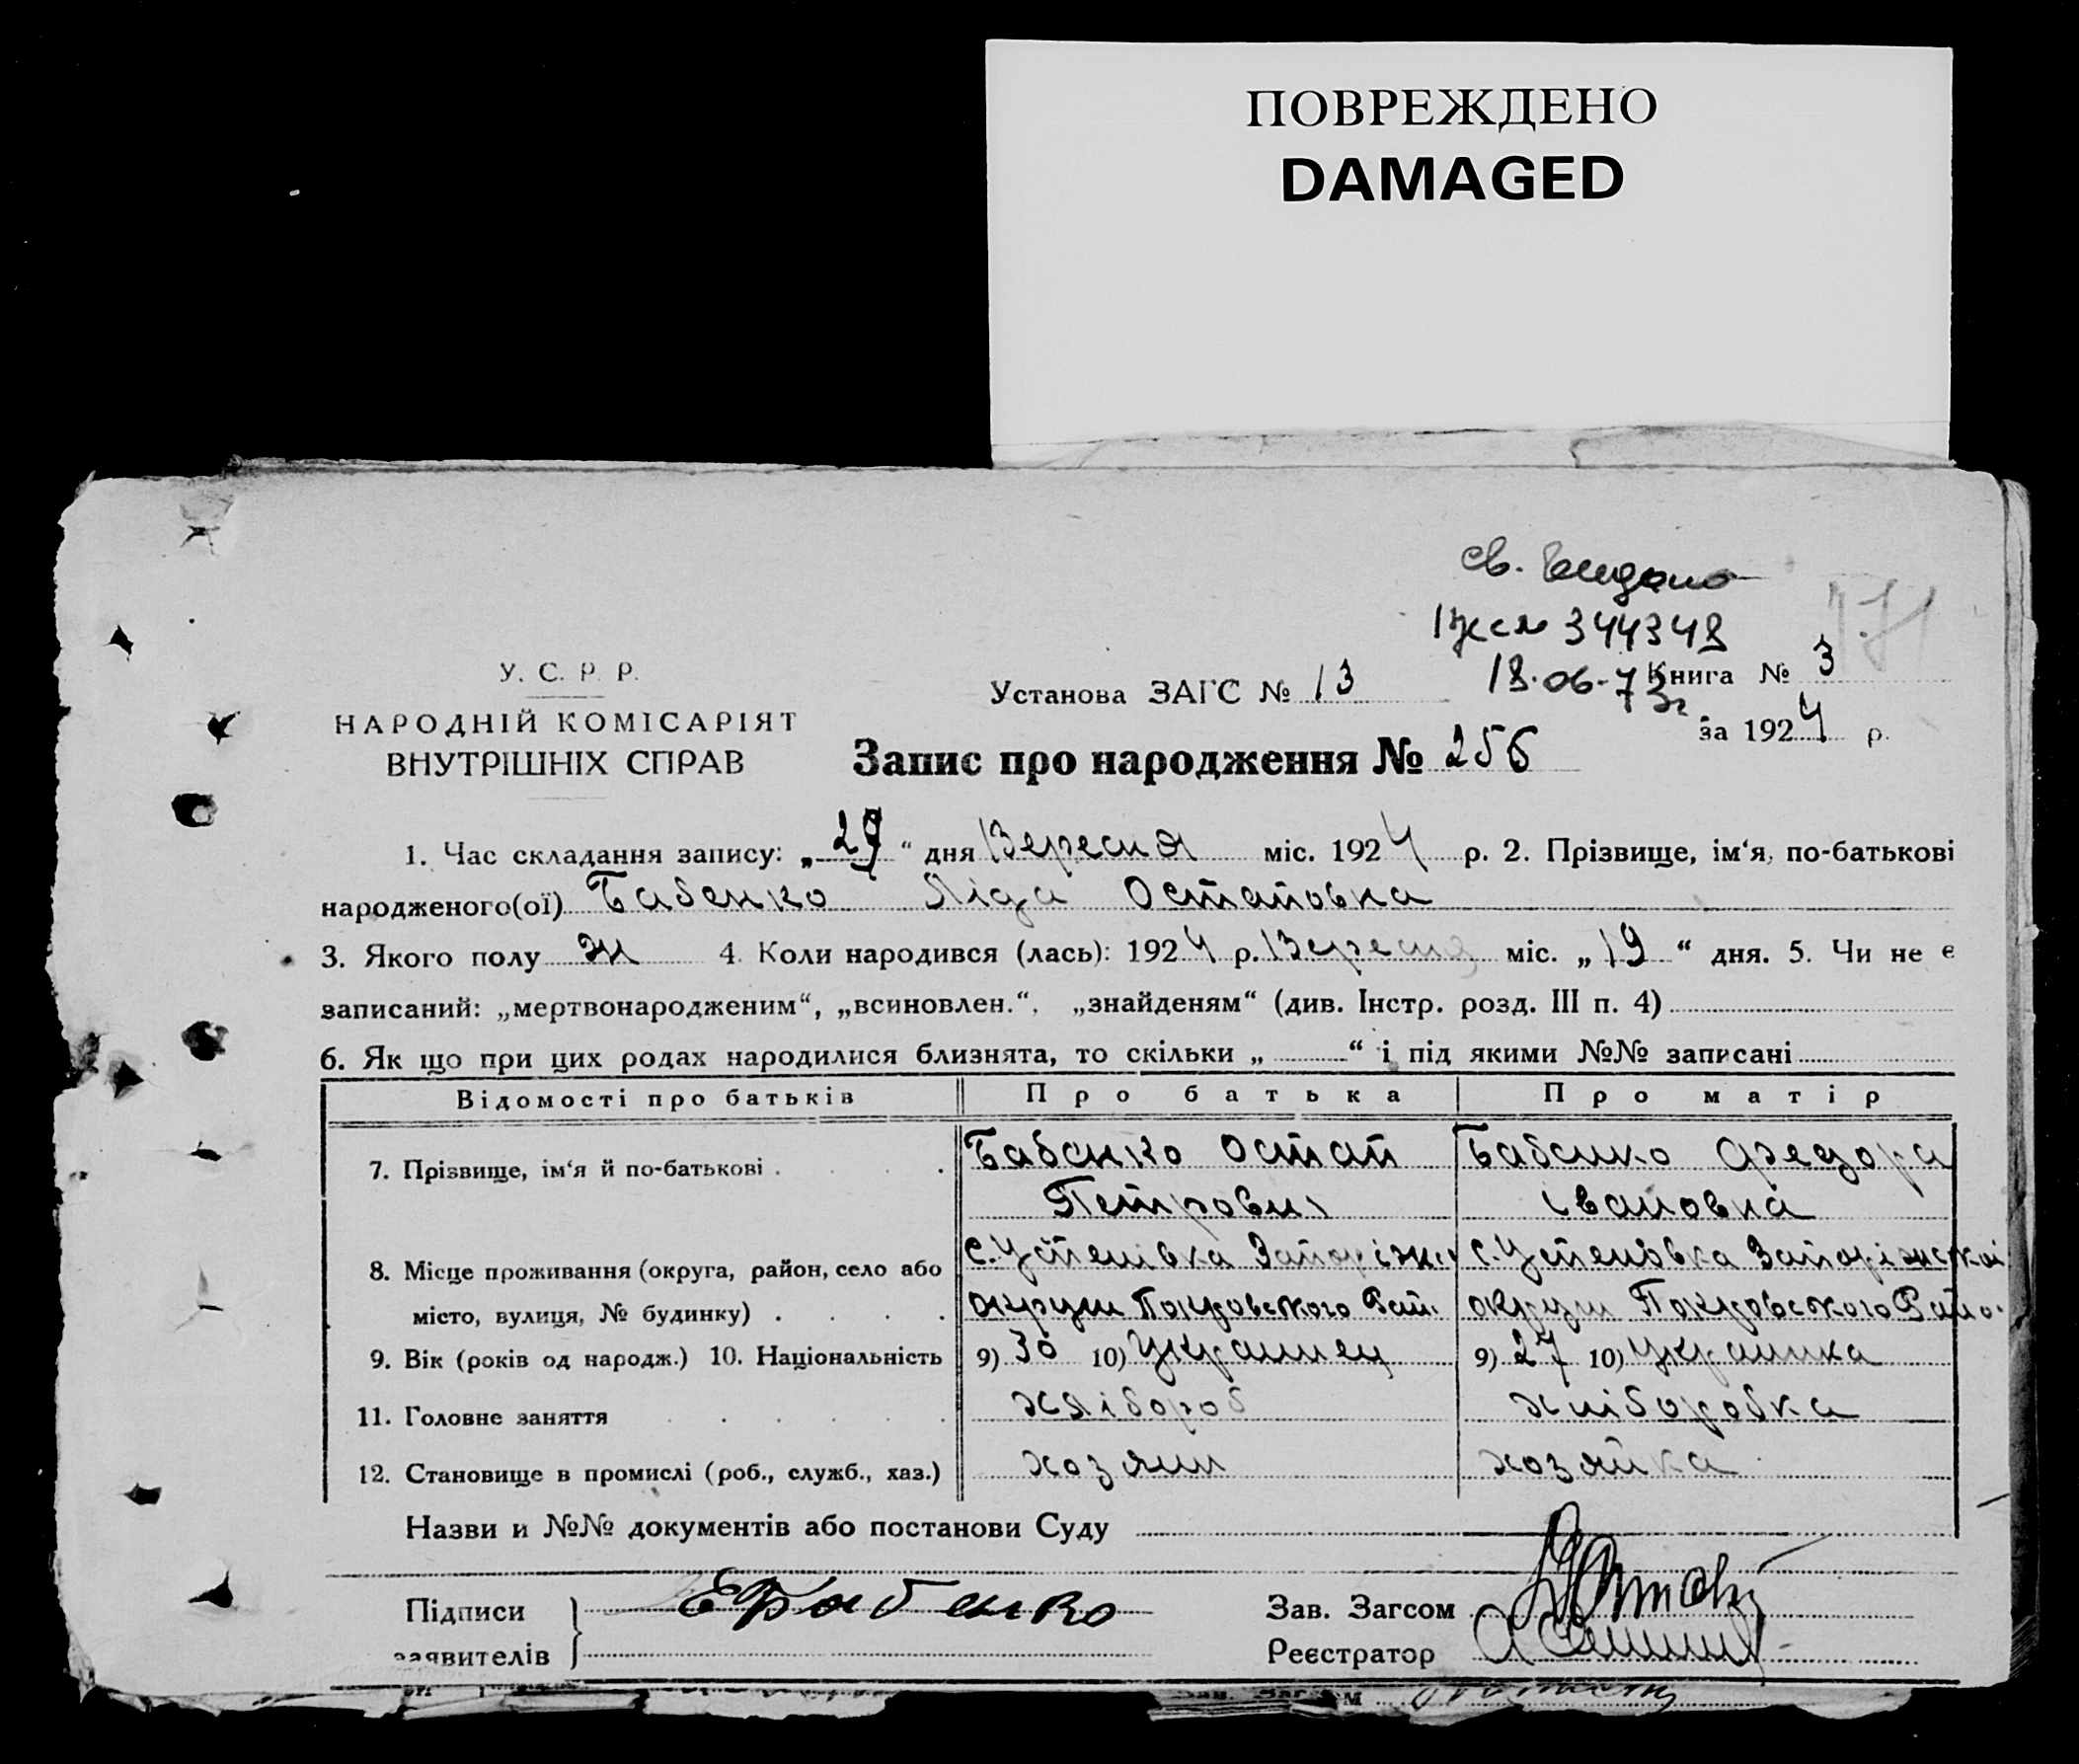 ПОВРЕЖДЕНО
DAMAGED
св. видано
344348
18.06-73г.
У. С. Р. Р.
НАРОДНІЙ КОМІСАРІЯТ
ВНУТРІШНІХ СПРАВ
Установа ЗАГС № 13
Книга № 3
за 1924 р.
Запис про народження № 256
1. Час складання запису: „29“ дня Вересня міс. 1924 р. 2. Прізвище, ім‘я, по-батькові
народженого(ої) Бабенко Ліда Остаповна
3. Якого полу ж 4. Коли народився (лась): 1924 р. Вересня міс. „19“ дня. 5. Чи не є
записаний: „мертвонародженим“, „всиновлен.“, „знайденям“ (див. Інстр. розд. III п. 4)
6. Як що при цих родах народилися близнята, то скільки „ “ і під якими №№ записані
Відомості про батьків Про батька Про матір
7. Прізвище, ім‘я й по-батькові Бабенко Остап Бабенко Федора
Петрович Івановна
8. Місце проживання (округа, район, село або с. Успенівка Запоріжс с. Успенівка Запоріжскої
місто, вулиця, № будинку) округи Покровського Рай. округи Покровського Райо.
9. Вік (років од народж.) 10. Національність 9) 30 10) Украинец 9) 27 10) Украинка
11. Головне заняття хлібороб хліборобка
12. Становище в промислі (роб., служб., хаз.) хозяин хозяйка
Назви и №№ документів або постанови Суду
Підписи Бабенко Зав. Загсом
заявителів Реєстратор